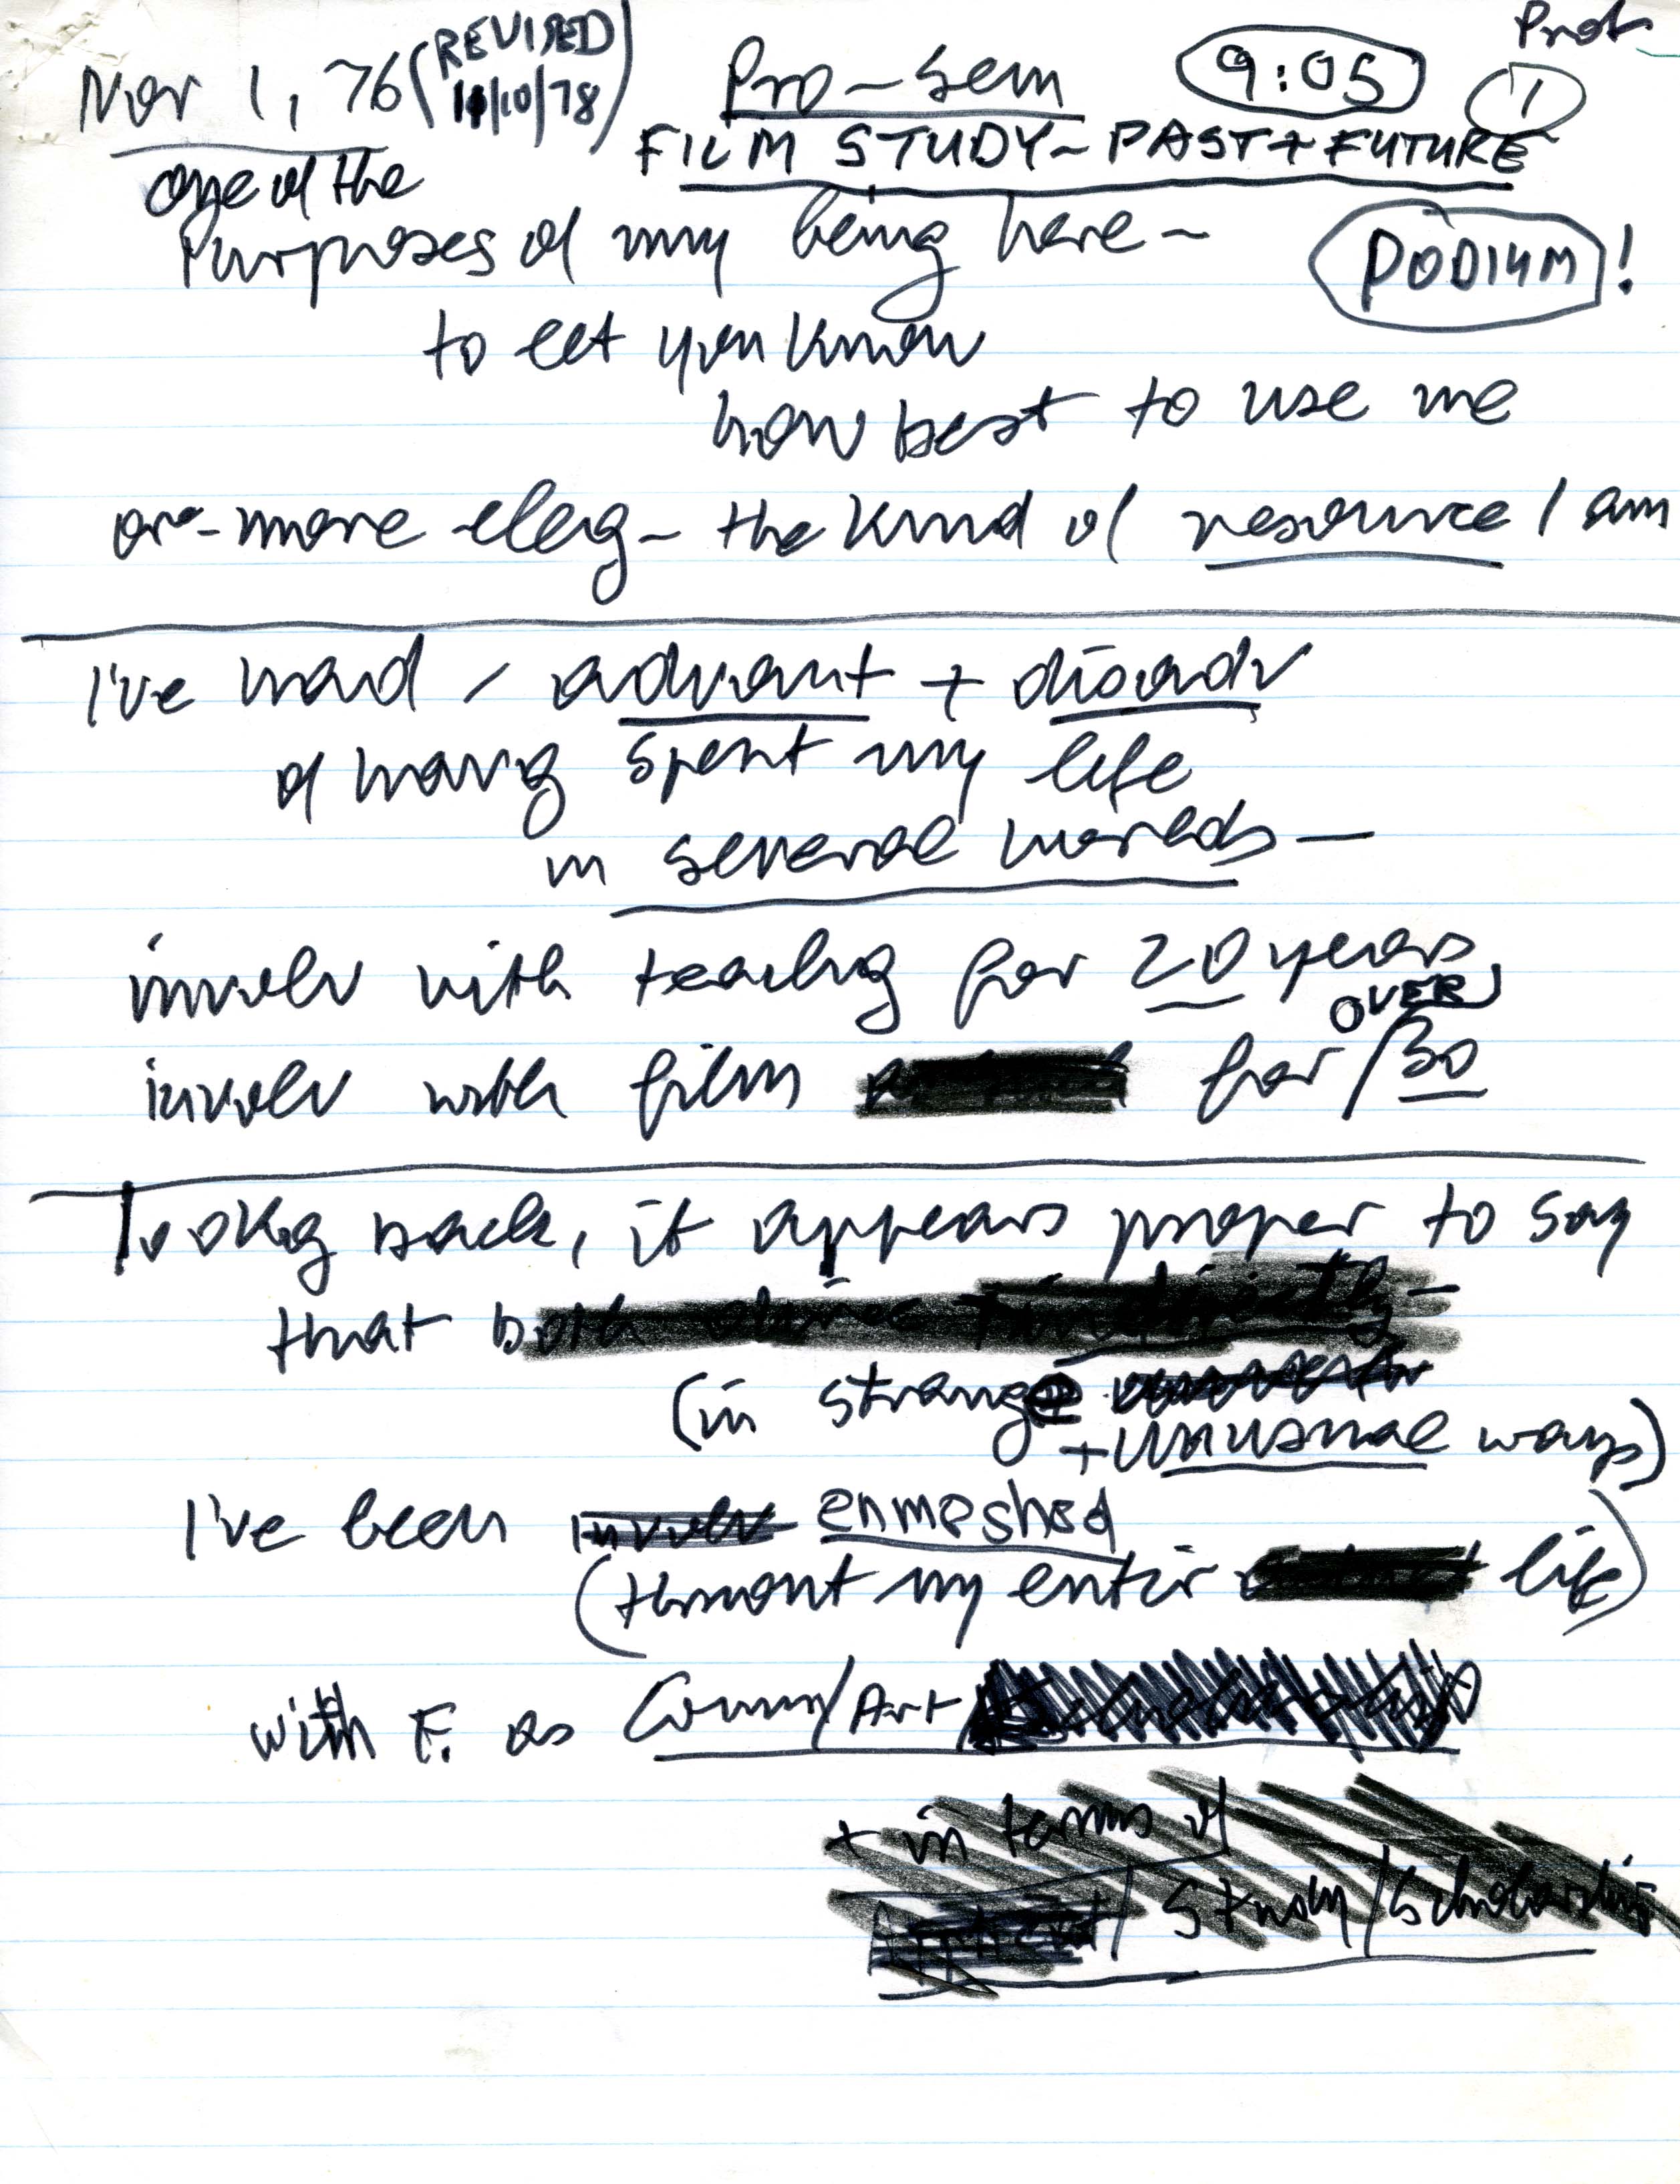 Nov 1, 76 (REVISED 11/10/78) Pro-Sem 9:05 Prof. 1
FILM STUDY - PAST + FUTURE
one of the
Purposes of my being here - PODIUM!
to let you know
how best to use me
or - more eleg - the kind of resource I am
I've had / advant + disadv
of havg spent my life
in several worlds -
involv with teachg for 20 years
OVER
involv with film for / 30
Lookg back, it appears proper to say
that both
(in strange
+ unusual ways)
I've been involv enmeshed
(thruout my entir life)
with F. as Comm/Art
+ in terms of
/ Study / Scholarship